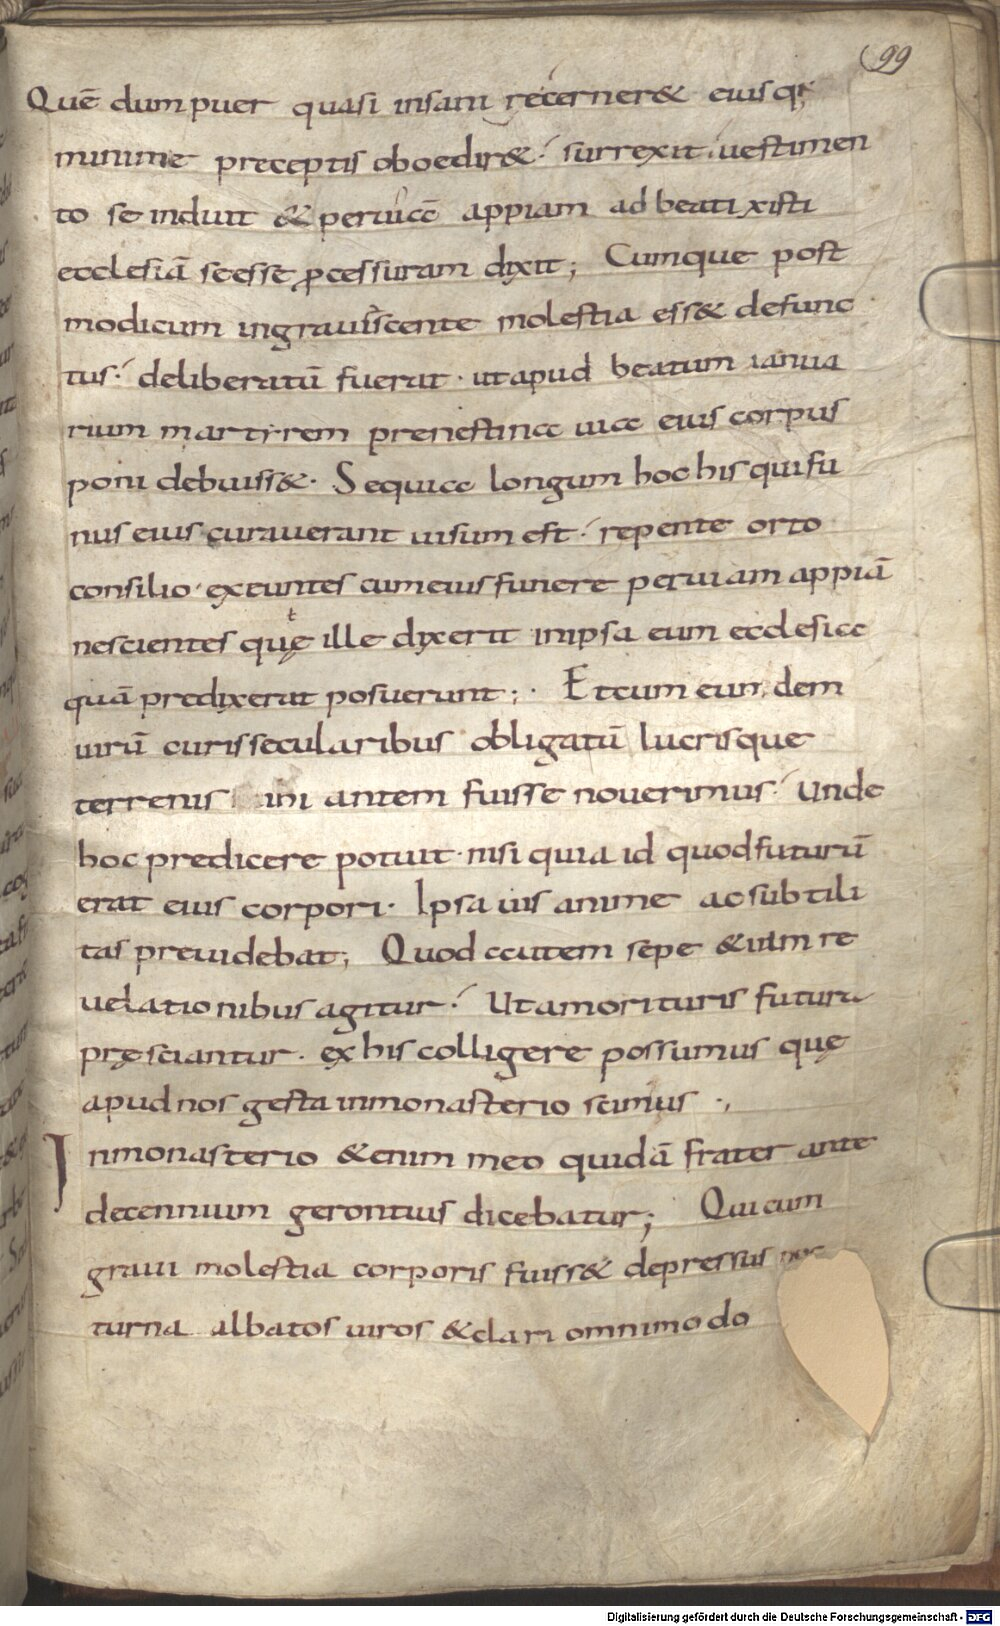 99
Quē dum puer quasi insani recerner& eius q;
minime preceptis oboedir&. surrexit. uestimen
to se induit & per uicē appiam ad beati xisti
ecclesiā se esse ꝓcessuram dixit; Cumque post
modicum ingrauiscente molestia ess& defunc
tus. deliberatū fuerat. ut apud beatum ianua
rium martyrem prenestina uia eius corpus
poni debuiss&. Sequia longum hoc his qui fu
nus eius curauerant uisum est. repente orto
consilio. exeuntes cum eius funere per uiam appiā
nescientes quę ille dixerit in ipsa eum ecclesia
quā predixerat posuerunt; Et cum eun dem
uirū curis secularibus obligatū lucrisque
terrenis ini antem fuisse nouerimus. Unde
hoc predicere potuit. nisi quia id quod futurū
erat eius corpori. Ipsa uis anime ac subtili
tas preuidebat; Quod autem sepe & iam re
uelationibus agitur. Ut a morituris futura
pręsciantur. ex his colligere possumus quę
apud nos gesta in monasterio scimus.,
In monasterio &enim meo quidā frater ante
decennium gerontius dicebatur; Qui cum
graui molestia corporis fuiss& depressus noc
turna albatos uiros & clari omnimodo
Digitalisierung gefördert durch die Deutsche Forschungsgemeinschaft - DFG